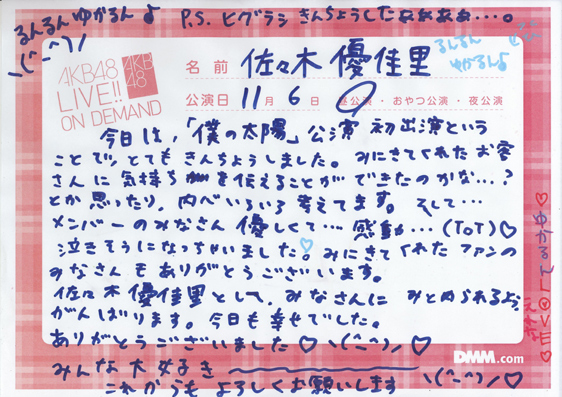 るんるん ゆかるん♪
\(^-^)/
P.S. ヒグラシ きんちょうしたぁぁぁぁ…。
AKB48
LIVE!!
ON DEMAND
AKB
48
名前 佐々木 優佳里
るんるん
ゆかるん♪
公演日 11月 6日 昼公演・おやつ公演・夜公演
今日は、「僕の太陽」公演 初出演という
ことで、とてもきんちょうしました。みにきてくれたお客
さんに気持ちを伝えることができたのかな…?
とか思ったり、内心いろいろ考えてます。そして…
メンバーのみなさん 優しくて… 感動…(ToT)♡
泣きそうになっちゃいました。♡みにきてくれたファンの
みなさんもありがとうございます。
佐々木優佳里として、みなさんに みとめられるよう、
がんばります。今日も幸せでした。
ありがとうございました♡\(^-^)/♡
みんな大好き
これからも よろしくお願いします \(^-^)/♡
DMM.com